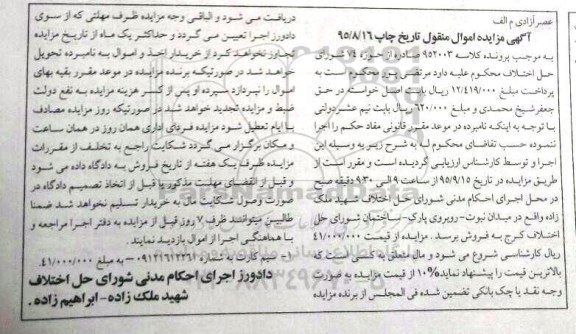 عصر آزادی م الف
آگهی مزایده اموال منقول تاریخ چاپ ۹۵/۸/۱۶
به موجب پرونده کلاسه ۹۵۲۰۰۳ صادره از حوزه ۷۴ شورای
حل اختلاف محکوم علیه داود مرتضی پور محکوم است به
پرداخت مبلغ ۱۲/۴۱۹/۰۰۰ ریال بابت اصل خواسته در حق
جعفر شیخ محمدی و مبلغ ۶۲۰/۰۰۰ ریال بابت نیم عشر دولتی
با توجه به اینکه نامبرده در موعد مقرر قانونی مفاد حکم را اجرا
ننموده حسب تقاضای محکوم له به شرح زیر به وسیله این
اجرا و توسط کارشناس ارزیابی گردیده است و مقرر است از
طریق مزایده در تاریخ ۹۵/۹/۱۵ از ساعت ۹ الی ۹۳۰ دقیقه صبح
در محل اجرای احکام مدنی شورای حل اختلاف شهید ملک
زاده واقع در میدان نبوت- روبروی پارک- ساختمان شورای حل
اختلاف کرج به فروش برسد. مزایده از قیمت ۴۱/۰۰۰/۰۰۰
ریال کارشناسی شروع می شود و مال متعلق به کسی است که
بالاترین قیمت را پیشنهاد نماید ۱۰% از قیمت مزایده به صورت
وجه نقد یا چک بانکی تضمین شده فی المجلس از برنده مزایده
دریافت می شود و الباقی وجه مزایده ظرف مهلتی که از سوی
دادورز اجرا تعیین می گردد و حداکثر یک ماه از تاریخ مزایده
تجاوز نخواهد کرد از خریدار اخذ و اموال به نامبرده تحویل
خواهد شد در صورتیکه برنده مزایده در موعد مقرر بقیه بهای
اموال را نپردازد سپرده او پس از کسر هزینه مزایده به نفع دولت
ضبط و مزایده تجدید خواهد شد در صورتیکه روز مزایده مصادف
با ایام تعطیل شود مزایده فردای اداری همان روز در همان ساعت
و مکان برگزار می گردد شکایت راجع به تخلف از مقررات
مزایده ظرف یک هفته از تاریخ فروش به دادگاه داده می شود
و قبل از انقضای مهلت مذکور یا قبل از اتخاذ تصمیم دادگاه در
صورت وصول شکایت مال به خریدار تسلیم نخواهد شد ضمنا
طالبین میتوانند ظرف ۷ روز قبل از مزایده به دفتر اجرا مراجعه و
با هماهنگی اجرا از اموال بازدید نمایند.
۱- سیم کارت به شماره به مبلغ ۴۱/۰۰۰/۰۰۰
دادورز اجرای احکام مدنی شورای حل اختلاف
شهید ملک زاده- ابراهیم زاده.